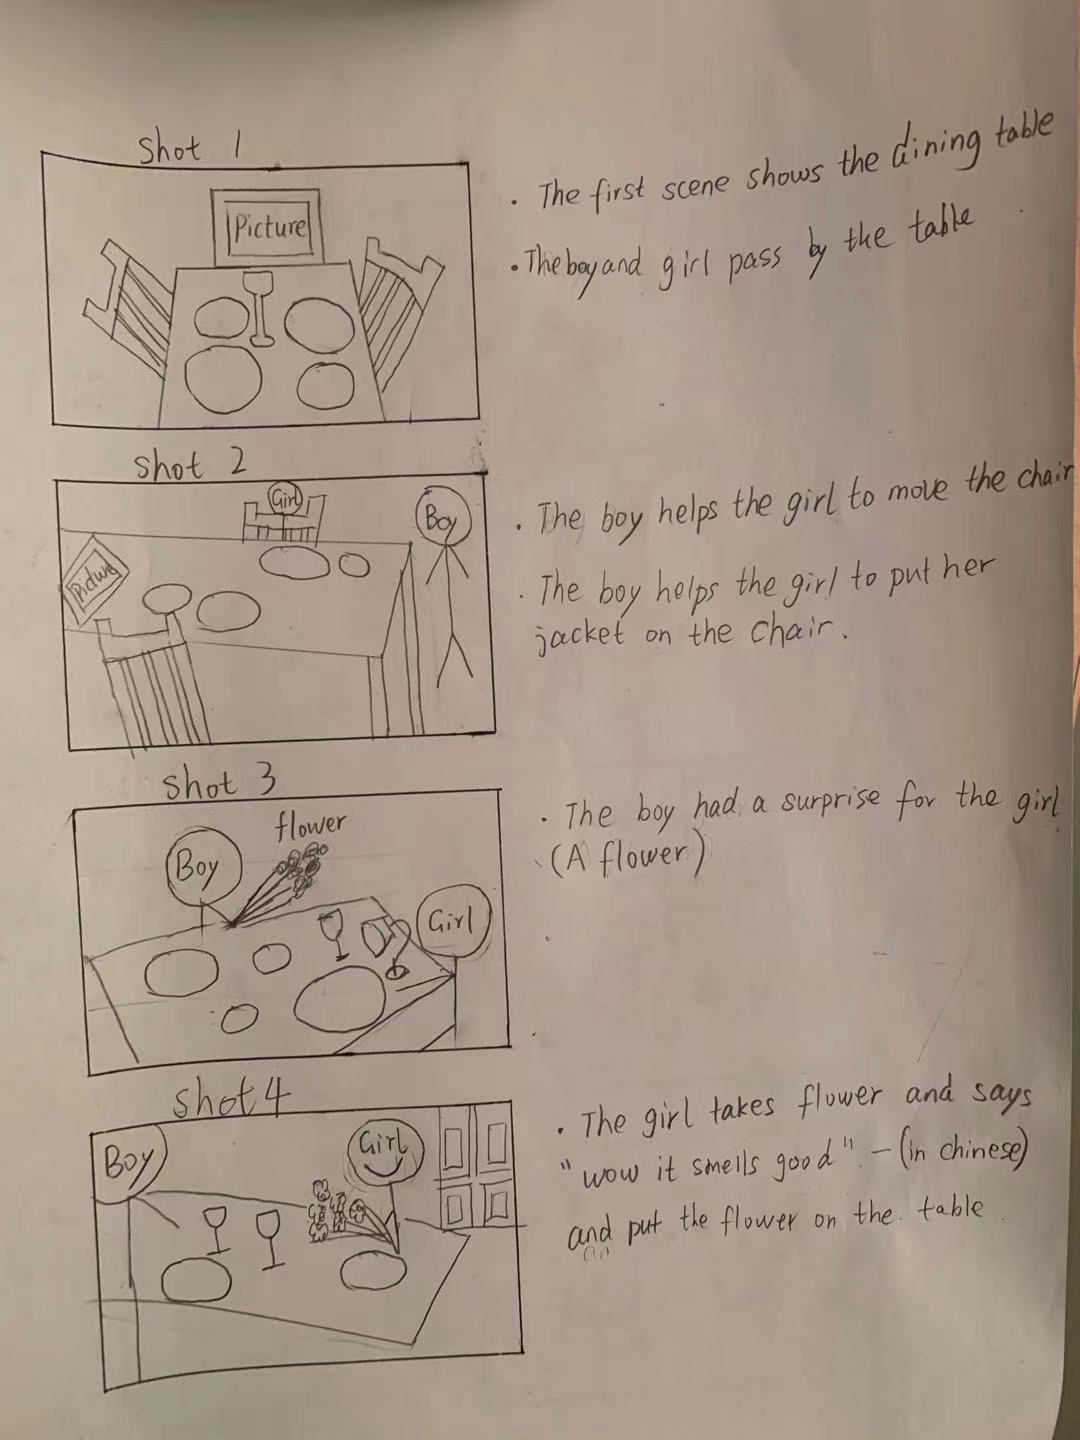 Shot 1
Picture
. The first scene shows the dining table
. The boy and girl pass by the table
Shot 2
Girl
Boy
Picture
. The boy helps the girl to move the chair
. The boy helps the girl to put her
jacket on the chair.
Shot 3
flower
Boy
Girl
. The boy had a surprise for the girl
(A flower)
Shot 4
Boy
Girl
. The girl takes flower and says
"wow it smells good". - (in chinese)
and put the flower on the table